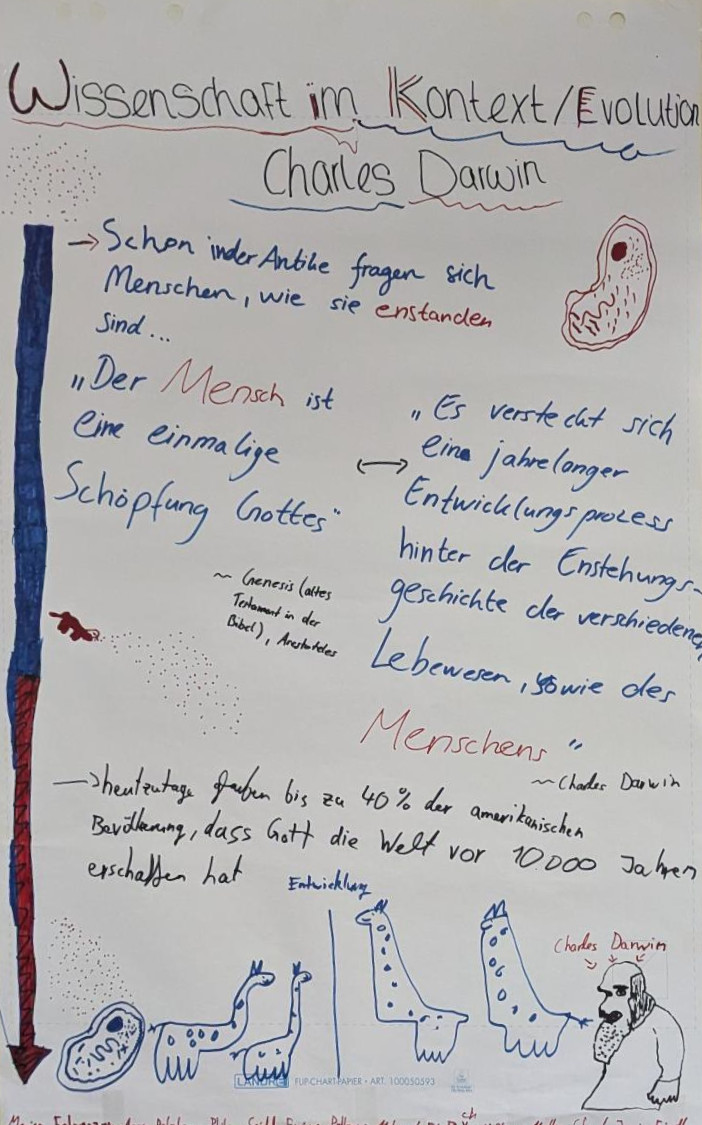 Wissenschaft im Kontext/Evolution
Charles Darwin
→ Schon in der Antike fragen sich
Menschen, wie sie enstanden
sind...
„Der Mensch ist
eine einmalige
Schöpfung Gottes"
~ Genesis (altes
Testament in der
Bibel), Arestoteles
↔
„Es versteckt sich
eine jahrelanger
Entwicklungsprozess
hinter der Enstehungs-
geschichte der verschiedenen
Lebewesen, sowie des
Menschens"
~ Charles Darwin
→ heutzutage glauben bis zu 40% der amerikanischen
Bevölkerung, dass Gott die Welt vor 10.000 Jahren
erschaffen hat
Entwicklung
Charles Darwin
LANDRÉ FLIP-CHART-PAPIER • ART. 100050593